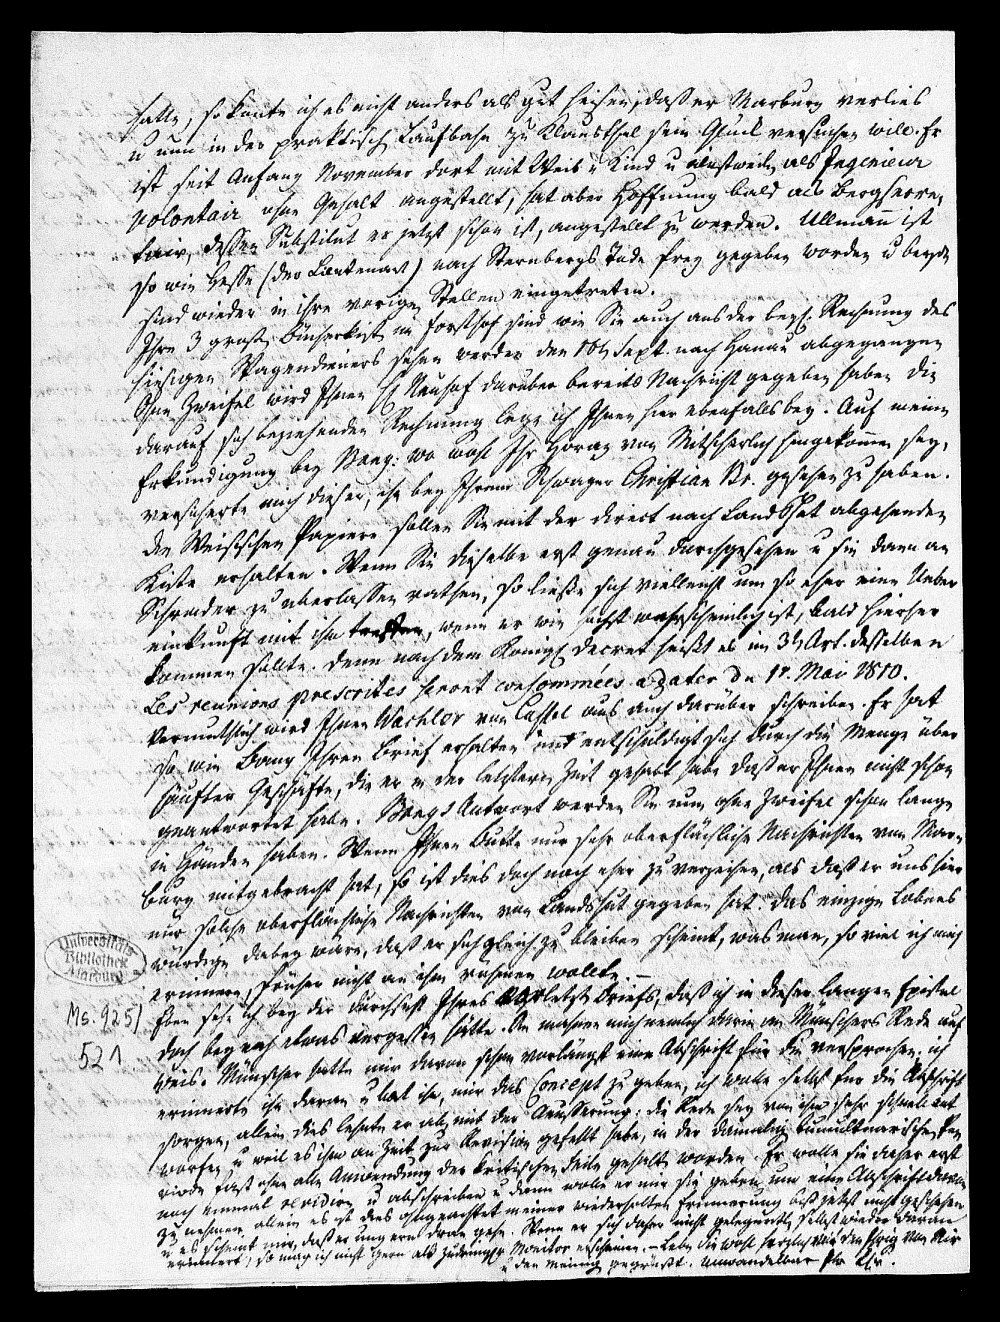 hatte, so konte ich es nicht anders als gut heisen, daß er Marburg verlies
u nun in der praktisch Laufbahn zu Klausthal sein Glück versuchen will. Er
ist seit Anfang November dort mit Weib u Kind u als Ingenieur
volontair ohne Gehalt angestellt, hat aber Hoffnung bald als Bergsecre-
tair, dessen Substitut er jetzt schon ist, angestellt zu werden. Ullmann ist
so wie Hesse (der Lieutenant) nach Sternbergs Tode frey gegeben worden u beyde
sind wieder in ihre vorige Stellen eingetreten.
Ihre 3 große Bücherkisten im Forsthof sind wie Sie auch aus der beyl. Rechnung des
hiesigen Wagendieners sehen werden den 10t Sept. nach Hanau abgegangen
Ohne Zweifel wird Ihnen H Neuhof darüber bereits Nachricht gegeben haben die
darauf sich beziehenden Rechnung lege ich Ihnen hier ebenfalls bey. Auf meine
Erkundigung bey Bang: wo wohl Ihr Horaz von Mitscherlich hingekommen sey,
versicherte mich dieser, ihn bey Ihrem Schwager Christian Br. gesehen zu haben.
die Weisischen Papiere sollen Sie mit der direct nach Landshut abgehenden
Kiste erhalten. Wenn Sie dieselbe erst genau durchgesehen u sie dann an
Schrader zu überlassen rathen, so ließe sich vielleicht um so eher eine Ueber
einkunft mit ihm treffen, wenn er wie höchst wahrscheinlich ist, bald hierher
kommen sollte. Denn nach dem Königl Decret heißt es im 3t Art. desselben
Les reunions prescrites seront consommées a dater du 1r. Mai 1810.
Vermuthlich wird Ihnen Wachler von Cassel aus auch darüber schreiben. Er hat
so wie Bang Ihren Brief erhalten und entschuldigt sich durch die Menge über
häufter Geschäfte, die er in der letztern Zeit gehabt habe daß er Ihnen nicht schon
geantwortet habe. Bangs Antwort werden Sie nun ohne Zweifel schon lange
in Händen haben. Wenn Ihnen Butte nur sehr oberflächliche Nachrichten von Mar-
burg mitgebracht hat, so ist dies doch noch eher zu verzeihen, als daß er uns hier
nur solche oberflächliche Nachrichten von Landshut gegeben hat. das einzige Lobens
würdige dabey wäre, daß er sich gleich zu bleiben scheint, was man, so viel ich mich
erinnere, früher nicht an ihm rühmen wollte. —
Eben sehe ich bey der Durchsicht Ihres letzten Briefs, daß ich in dieser langen Epistel
doch bey noch etwas vergessen hätte. Sie mahnen mich nemlich darin an Münschers Rede auf
Weis. Münscher hatte mir davon schon vorlängst eine Abschrift für Sie versprochen. ich
erinnerte ihn daran u bat ihn, mir das Concept zu geben, ich wolle selbst für die Abschrift
sorgen, allein dies lehnte er ab mit der Aeusserung: die Rede sey von ihm sehr schnell ent
worfen u weil es ihm an Zeit zur Revision gefehlt habe, in der damaligen tumultuarischen Pe
riode fast ohne alle Anwendung der kritischen Feile gehalten worden. Er wolle sie daher erst
noch einmal revidiren u abschreiben u dann wolle er mir sie geben, um eine Abschrift davon
zu nehmen, allein es ist dies ohngeachtet meiner wiederholten Erinnerung bis jetzt nicht geschehen
u es scheint mir, daß er ungern dran gehe. Wenn er sich daher nicht gelegentlich selbst wieder daran
erinnert, so mag ich nicht gern als Monitor erscheinen. — Leben Sie wohl herzlich wie den Ihrig von Mir
u den Meinig gegrüßt. Unwandelbar Ihr
Universitäts
Bibliothek
Marburg
Ms. 925/
521